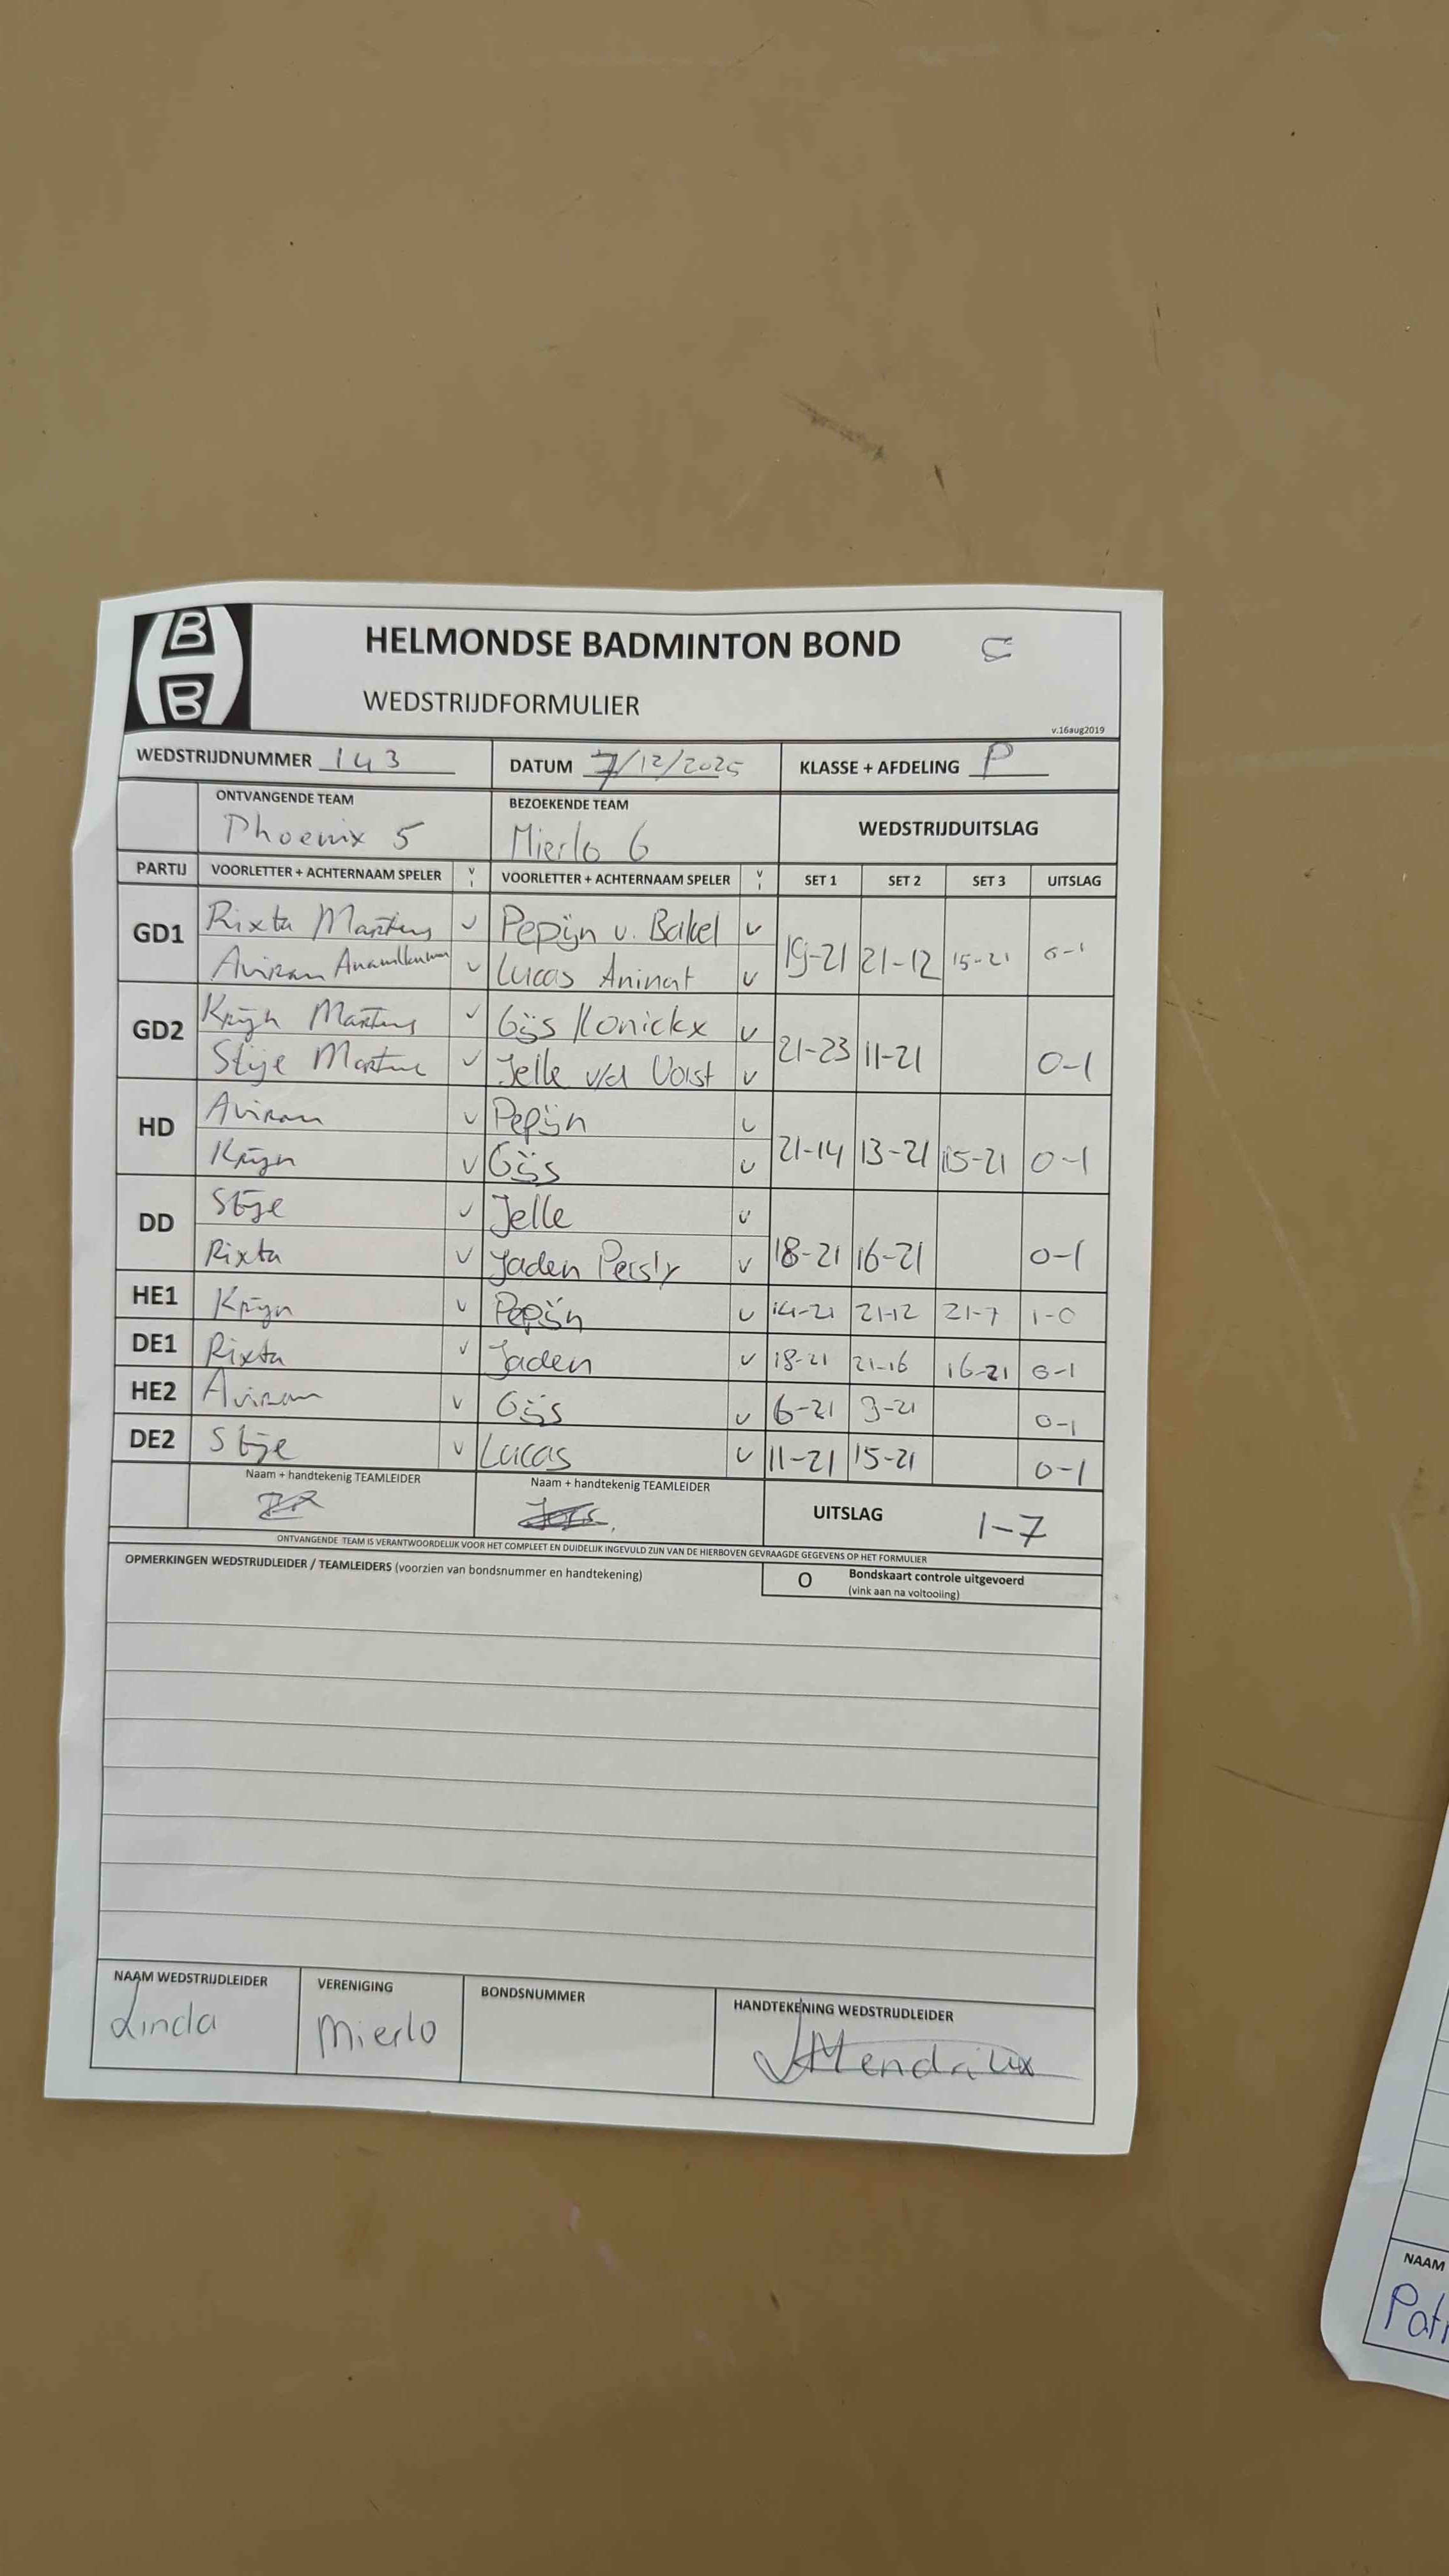 B
B
HELMONDSE BADMINTON BOND
WEDSTRIJDFORMULIER
v.16aug2019
WEDSTRIJDNUMMER 143 DATUM 7/12/2025 KLASSE + AFDELING P
ONTVANGENDE TEAM BEZOEKENDE TEAM WEDSTRIJDUITSLAG
Phoenix 5 Mierlo 6
PARTIJ VOORLETTER + ACHTERNAAM SPELER V VOORLETTER + ACHTERNAAM SPELER V SET 1 SET 2 SET 3 UITSLAG
GD1 Rixta Martens v Pepijn v. Bakel v 19-21 21-12 15-21 0-1
Aviram v Lucas Aninat v
GD2 Krijn Martens v Gijs Konickx v 21-23 11-21 0-1
Stije Martens v Jelle v/d Vorst v
HD Aviram v Pepijn v 21-14 13-21 15-21 0-1
Krijn v Gijs v
DD Stije v Jelle v 18-21 16-21 0-1
Rixta v Jaden v
HE1 Krijn v Pepijn v 14-21 21-12 21-7 1-0
DE1 Rixta v Jaden v 18-21 21-16 16-21 0-1
HE2 Aviram v Gijs v 6-21 9-21 0-1
DE2 Stije v Lucas v 11-21 15-21 0-1
Naam + handtekenig TEAMLEIDER Naam + handtekenig TEAMLEIDER UITSLAG 1-7
ONTVANGENDE TEAM IS VERANTWOORDELIJK VOOR HET COMPLEET EN DUIDELIJK INGEVULD ZIJN VAN DE HIERBOVEN GEVRAAGDE GEGEVENS OP HET FORMULIER
OPMERKINGEN WEDSTRIJDLEIDER / TEAMLEIDERS (voorzien van bondsnummer en handtekening) O Bondskaart controle uitgevoerd
(vink aan na voltooiing)
NAAM WEDSTRIJDLEIDER VERENIGING BONDSNUMMER HANDTEKENING WEDSTRIJDLEIDER
Linda Mierlo
NAAM